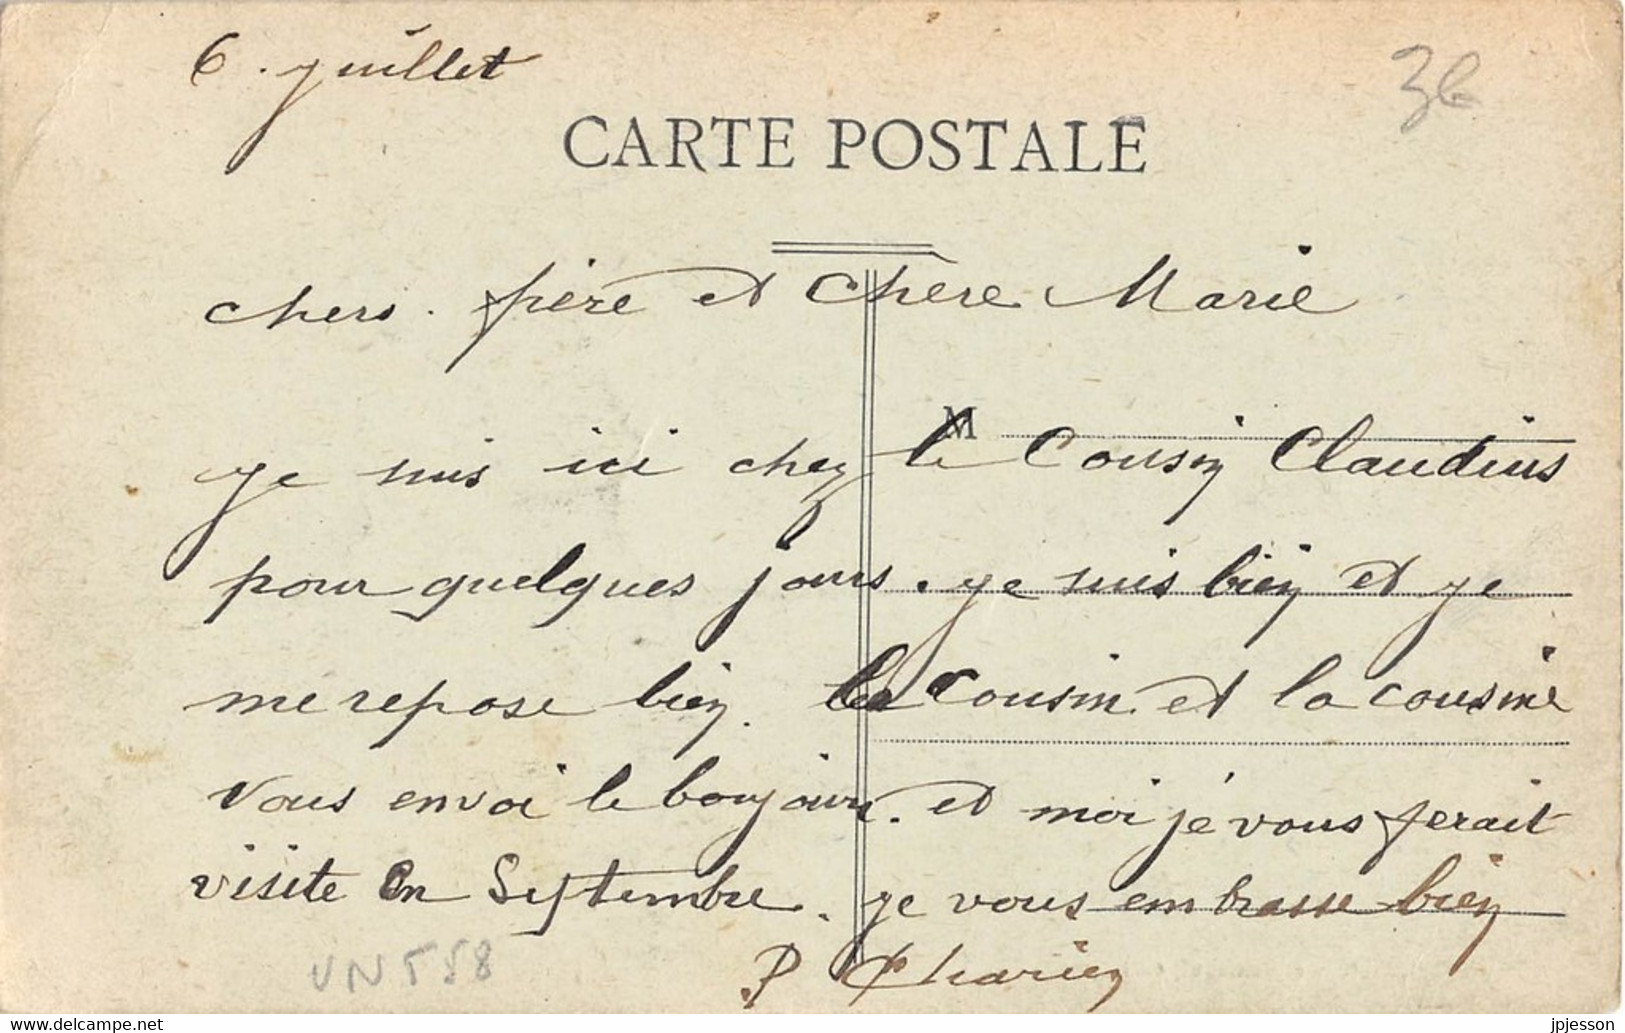 6. juillet
36
CARTE POSTALE
chers. frère et chère Marie
M
je suis ici chez le Cousin Claudius
pour quelques jours. je suis bien et je
me repose bien. Le Cousin et la cousine
vous envoi le bonjour. et moi je vous ferait
visite en Septembre. je vous embrasse bien
P Charien
VN 558
Delcampe.net
jpjesson